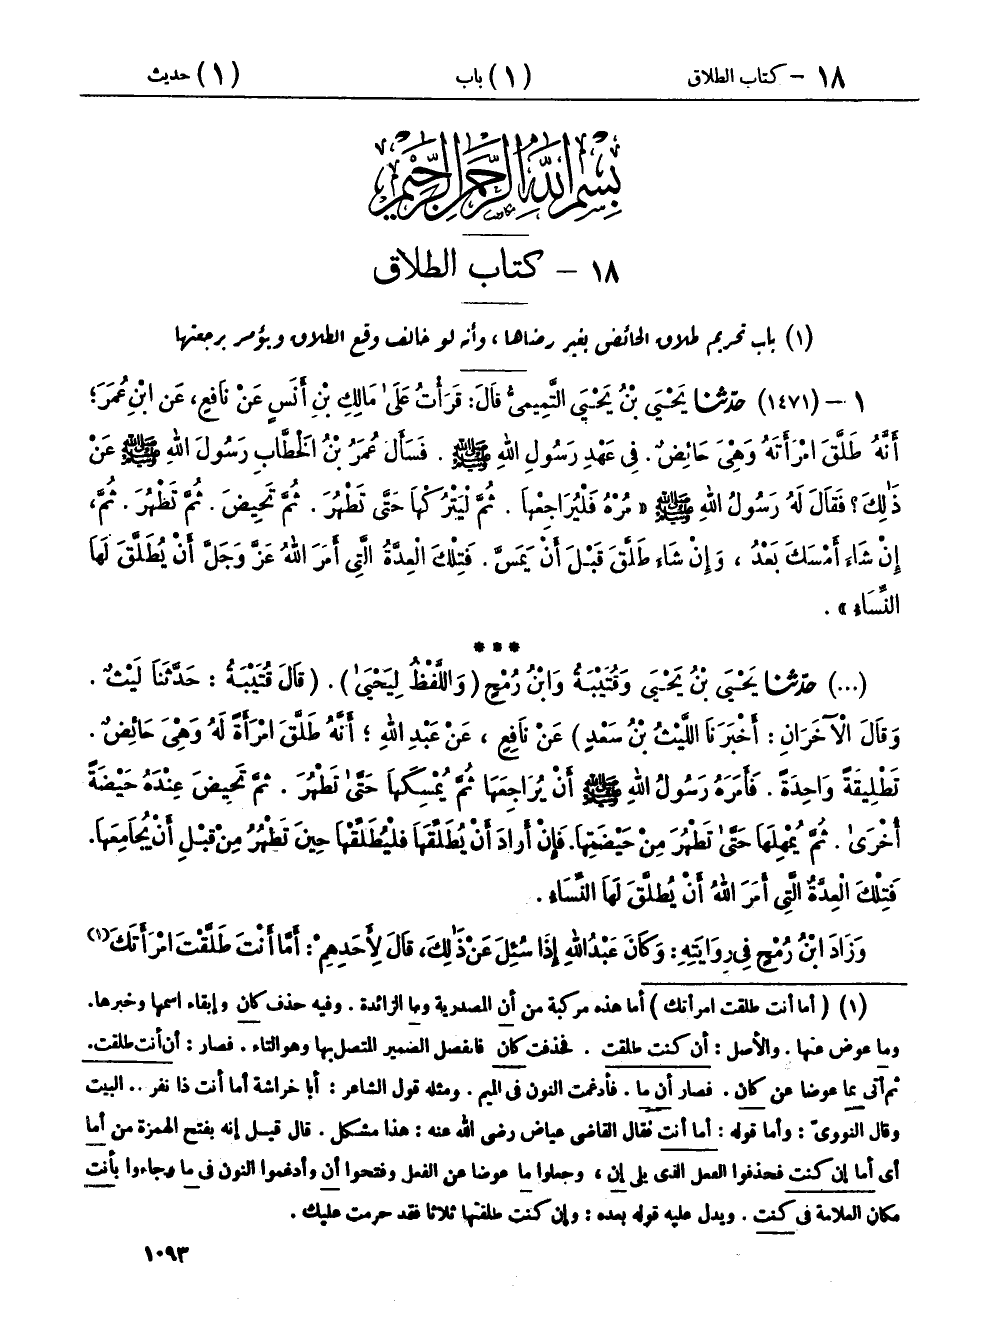 ١٨ - كتاب الطلاق (١) باب (١) حديث
بِسْمِ اللهِ الرَّحْمٰنِ الرَّحِيمِ
١٨ - كتاب الطلاق
(١) باب تحريم طلاق الحائض بغير رضاها ، وأنه لو خالف وقع الطلاق ويؤمر برجعتها
١ - (١٤٧١) حدّثنا يَحْيَى بْنُ يَحْيَى التَّمِيمِىُّ قَالَ: قَرَأْتُ عَلَىٰ مَالِكِ بْنِ أَنَسٍ عَنْ نَافِعٍ، عَنِ ابْنِ عُمَرَ؛
أَنَّهُ طَلَّقَ امْرَأَتَهُ وَهْىَ حَائِضٌ. فِى عَهْدِ رَسُولِ اللهِ ﷺ . فَسَأَلَ عُمَرُ بْنُ الْخَطَّابِ رَسُولَ اللهِ ﷺ عَنْ
ذَٰلِكَ؟ فَقَالَ لَهُ رَسُولُ اللهِ ﷺ « مُرْهُ فَلْيُرَاجِعْهَا . ثُمَّ لْيَتْرُكْهَا حَتَّى تَطْهُرَ . ثُمَّ تَحِيضَ . ثُمَّ تَطْهُرَ . ثُمَّ،
إِنْ شَاءَ أَمْسَكَ بَعْدُ ، وَإِنْ شَاءَ طَلَّقَ قَبْلَ أَنْ يَمَسَّ . فَتِلْكَ الْعِدَّةُ الَّتِى أَمَرَ اللهُ عَزَّ وَجَلَّ أَنْ يُطَلَّقَ لَهَا
النِّسَاءُ » .
***
(...) حدّثنا يَحْيَى بْنُ يَحْيَى وَقُتَيْبَةُ وَابْنُ رُمْحٍ (وَاللَّفْظُ لِيَحْيَىٰ) . (قَالَ قُتَيْبَةُ : حَدَّثَنَا لَيْثٌ .
وَقَالَ الْآخَرَانِ : أَخْبَرَنَا اللَّيْثُ بْنُ سَعْدٍ) عَنْ نَافِعٍ ، عَنْ عَبْدِ اللهِ ؛ أَنَّهُ طَلَّقَ امْرَأَةً لَهُ وَهْىَ حَائِضٌ .
تَطْلِيقَةً وَاحِدَةً . فَأَمَرَهُ رَسُولُ اللهِ ﷺ أَنْ يُرَاجِعَهَا ثُمَّ يُمْسِكَهَا حَتَّىٰ تَطْهُرَ . ثُمَّ تَحِيضَ عِنْدَهُ حَيْضَةً
أُخْرَىٰ . ثُمَّ يُمْهِلَهَا حَتَّىٰ تَطْهُرَ مِنْ حَيْضَتِهَا. فَإِنْ أَرَادَ أَنْ يُطَلِّقَهَا فَلْيُطَلِّقْهَا حِينَ تَطْهُرُ مِنْ قَبْلِ أَنْ يُجَامِعَهَا.
فَتِلْكَ الْعِدَّةُ الَّتِى أَمَرَ اللهُ أَنْ يُطَلَّقَ لَهَا النِّسَاءُ .
وَزَادَ ابْنُ رُمْحٍ فِى رِوَايَتِهِ: وَكَانَ عَبْدُ اللهِ إِذَا سُئِلَ عَنْ ذَٰلِكَ، قَالَ لِأَحَدِهِمْ: أَمَّا أَنْتَ طَلَّقْتَ امْرَأَتَكَ(١)
(١) (أما أنت طلقت امرأتك) أما هذه مركبة من أن المصدرية وما الزائدة . وفيه حذف كان وإبقاء اسمها وخبرها.
وما عوض عنها . والأصل : أن كنت طلقت . فحذفت كان فانفصل الضمير المتصل بها وهو التاء . فصار : أن أنت طلقت.
ثم أتى بما عوضا عن كان . فصار أن ما . فأدغمت النون فى الميم . ومثله قول الشاعر : أبا خراشة أما أنت ذا نفر .. البيت
وقال النووىّ : وأما قوله : أما أنت فقال القاضى عياض رضى الله عنه : هذا مشكل . قال قيل إنه بفتح الهمزة من أما
أى أما إن كنت فحذفوا الفعل الذى يلى إن ، وجعلوا ما عوضا عن الفعل وفتحوا أن وأدغموا النون فى ما وجاءوا بأنت
مكان العلامة فى كنت . ويدل عليه قوله بعده : وإن كنت طلقتها ثلاثا فقد حرمت عليك .
١٠٩٣